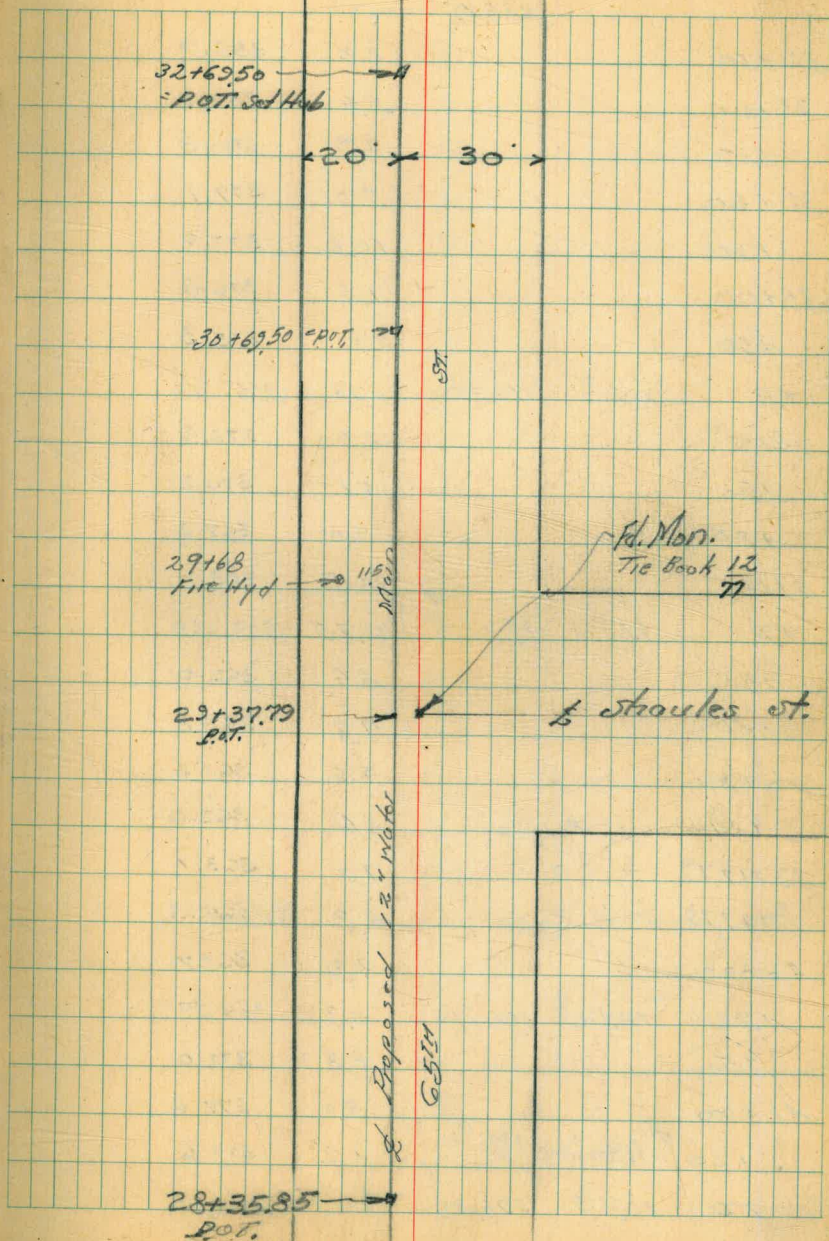 32+69.50
= P.O.T. Set Hub
20' 30'
30+69.50 = P.O.T.
ST.
29+68
Fire Hyd
11.5
Main
Fd. Mon.
Tie Book 12
77
29+37.79
P.O.T.
℄ Shaules St.
℄ Proposed 12" Water
65TH
28+35.85
P.O.T.